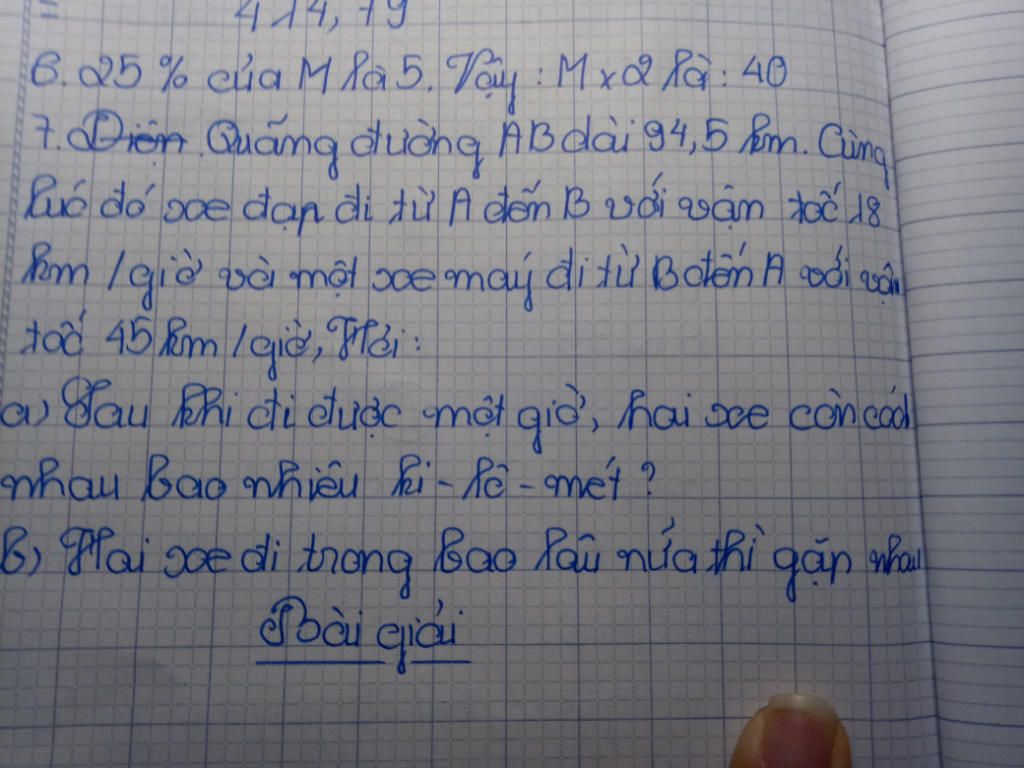 414,79
6. 25% của M là 5. Vậy: M x 2 là: 40
7. Diện Quãng đường AB dài 94,5 km. Cùng
lúc đó xe đạp đi từ A đến B với vận tốc 18
km/giờ và một xe máy đi từ B đến A với vận
tốc 45 km/giờ, Hỏi:
a) Sau khi đi được một giờ, hai xe còn cách
nhau bao nhiêu ki-lô-mét?
b) Hai xe đi trong bao lâu nữa thì gặp nhau
Bài giải